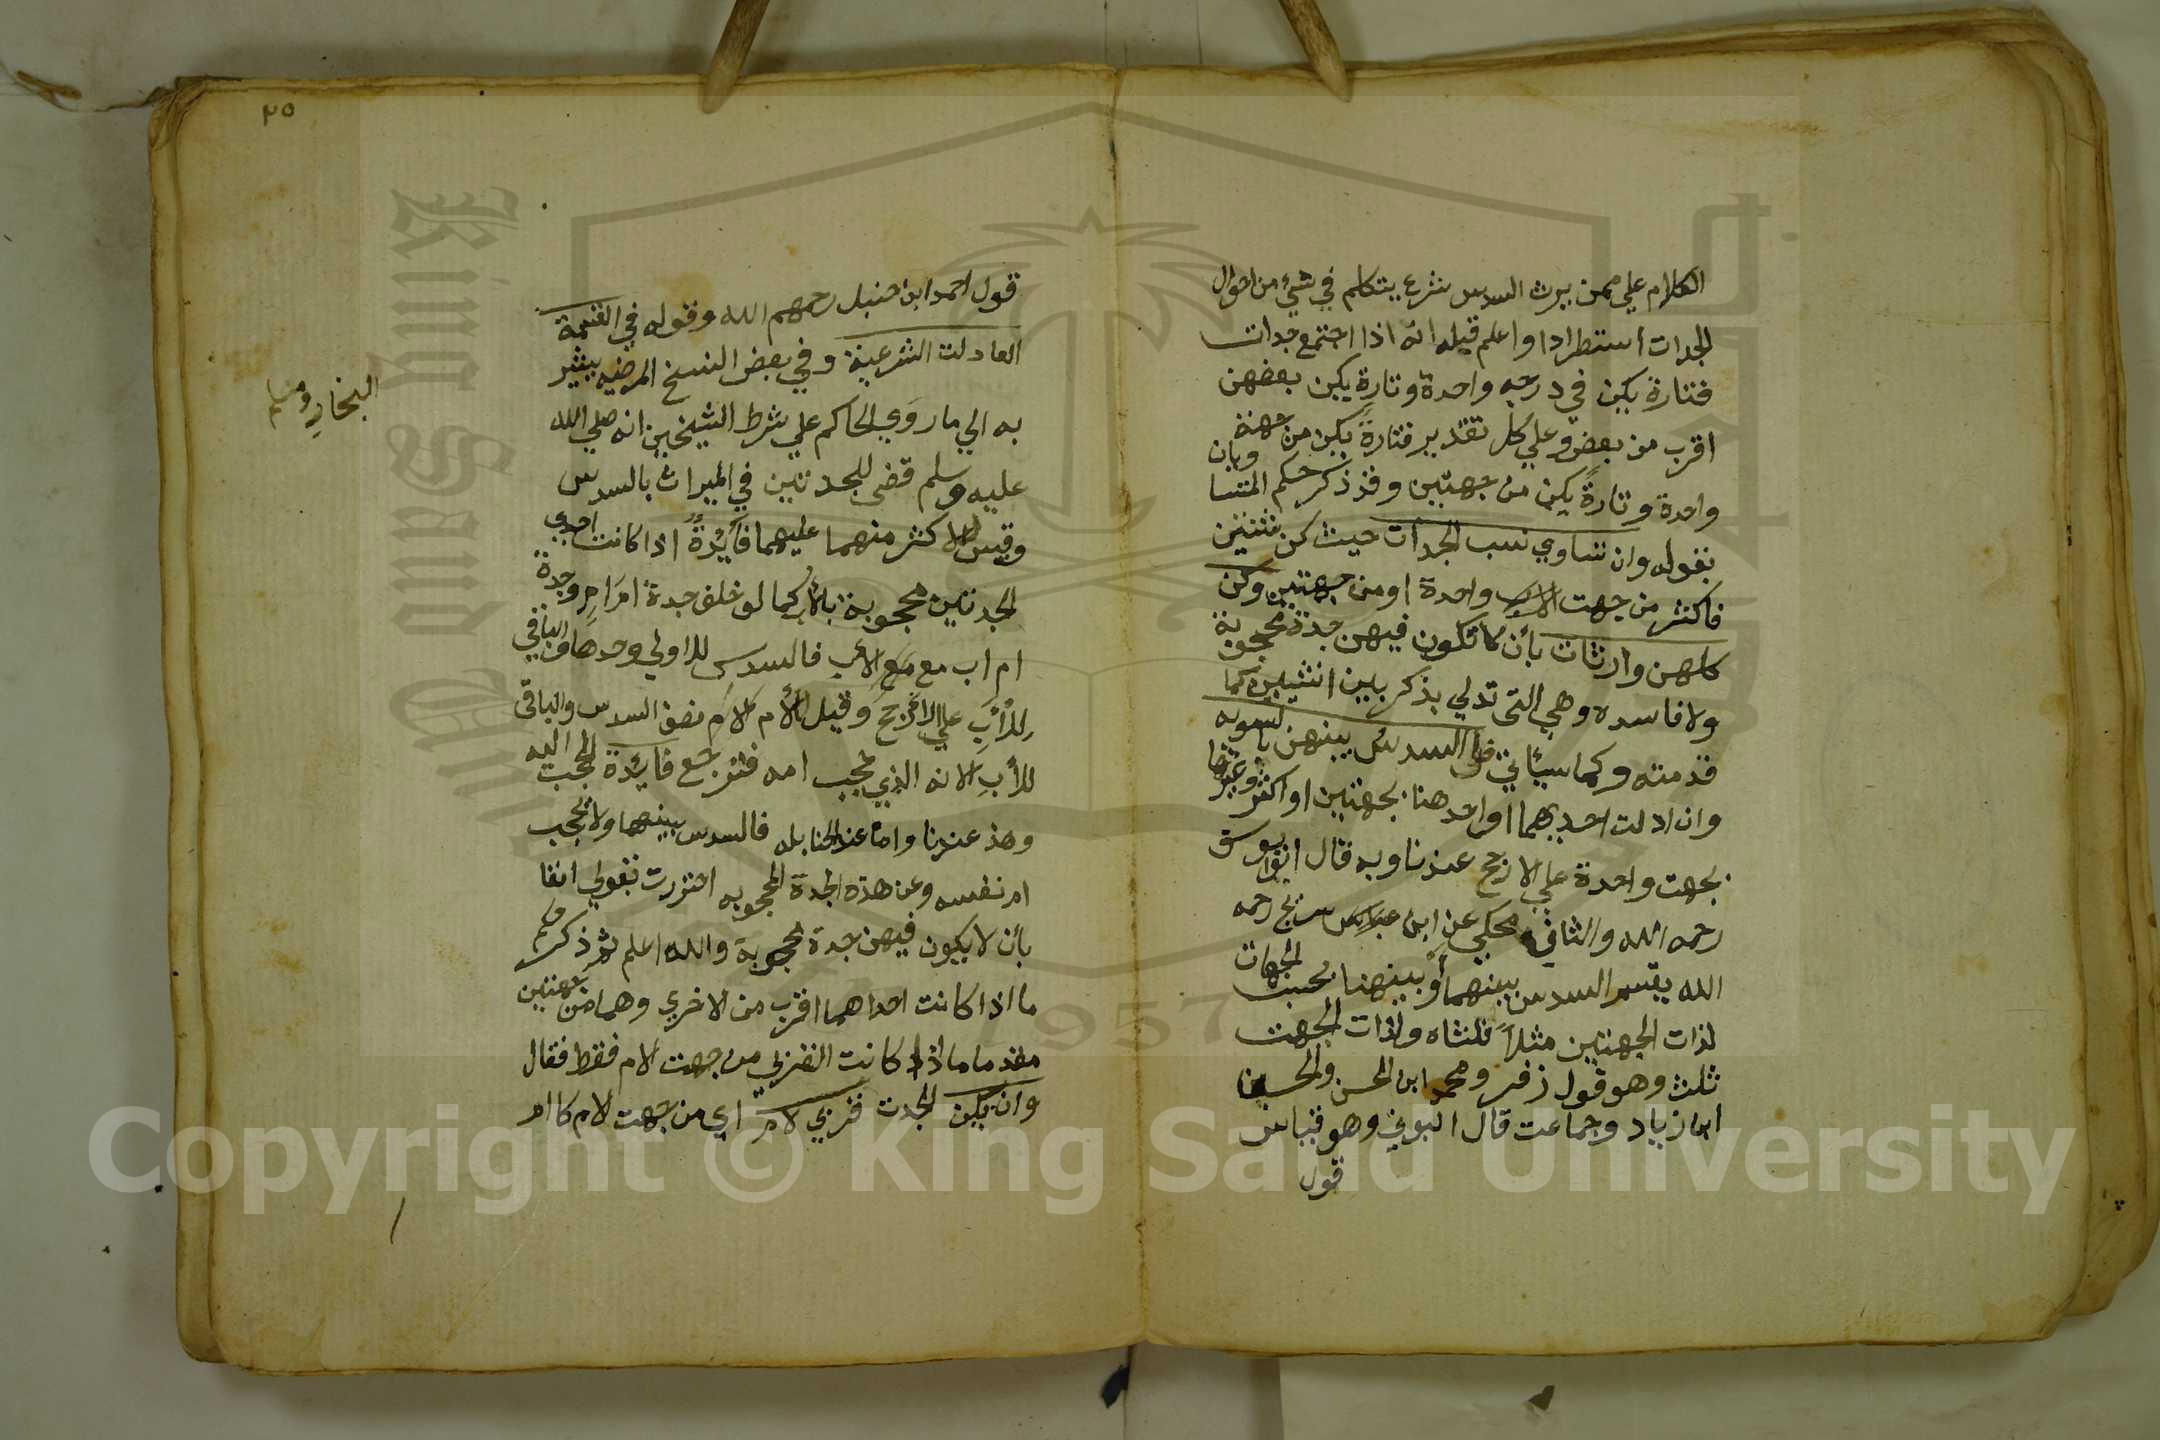 الكلام علي من يرث السدس شرع يتكلم في شئ من احوال
الجدات استطرادا واعلم قبله انه اذا اجتمع جدات
فتارة يكن في درجه واحدة وتارة يكن بعضهن
اقرب من بعض وعلي كل تقدير فتارةً يكن من جهة
واحدة وتارةً يكن من جهتين وقد ذكر حكم المتسا
ويان
بقوله وان تساوي نسب الجدات حيث كن ثنتين
فاكثر من جهت واحدة او من جهتين وكن
كلهن وارثات بأن لا تكون فيهن جدة محجوبة
ولا فاسده وهي التى تدلي بذكر بين انثيين كما
قدمته وكما سيأتي فالسدس بينهن بالسويه
وان ادلت احديهما او احدهنا بجهتين او اكثر وغيرها
بجهت واحدة علي الارجح عندنا وبه قال ابو يوسف
رحمه الله والثاني محكي عن ابن سريج رحمه
الله يقسم السدس بينهما أو بينهنا بحسب الجهات
لذات الجهتين مثلاً ثلثاه ولذات الجهت
ثلث وهو قول زفر ومحمد ابن الحسن والحسن
ابن زياد وجماعت قال الـوني وهو قياس
قول
٢٥
قول احمد ابن حنبل رحمهم الله وقوله في القسمة
العادلت الشرعية وفي بعض النسخ المرضيه يشير
به الي ما روَي الحاكم علي شرط الشيخين انه صلي الله
البخارِ ومسلم
عليه وسلم قضى للجدتين في الميراث بالسدس
وقيس الاكثر منهما عليهما فأئدةٌ اذا كانت احدي
الجدتين محجوبة بالأب كما لو خلف جدة ام ام وجدة
ام اب مع الاب فالسدس للاولي وحدها والباقي
لِلأبِ علي الارجح وقيل للأم الأم نصف السدس والباقى
للأبِ لانه الذي حجب امه فترجع فايدة الحجب اليه
وهذ عندنا واما عند الحنابله فالسدس بينهما ولا يحجب
ام نفسه وعن هذه الجدة المحجوبه احتزرت بقولي انفا
بأن لا يكون فيهن جدة محجوبة والله اعلم ثم ذكر حكم
ما اذا كانت احداهما اقرب من الاخري وهما من جهتين
مقدما ما اذا كانت القربي من جهت الام فقط فقال
وان تكن الجدت قربي لام اي من جهت الام كا ام